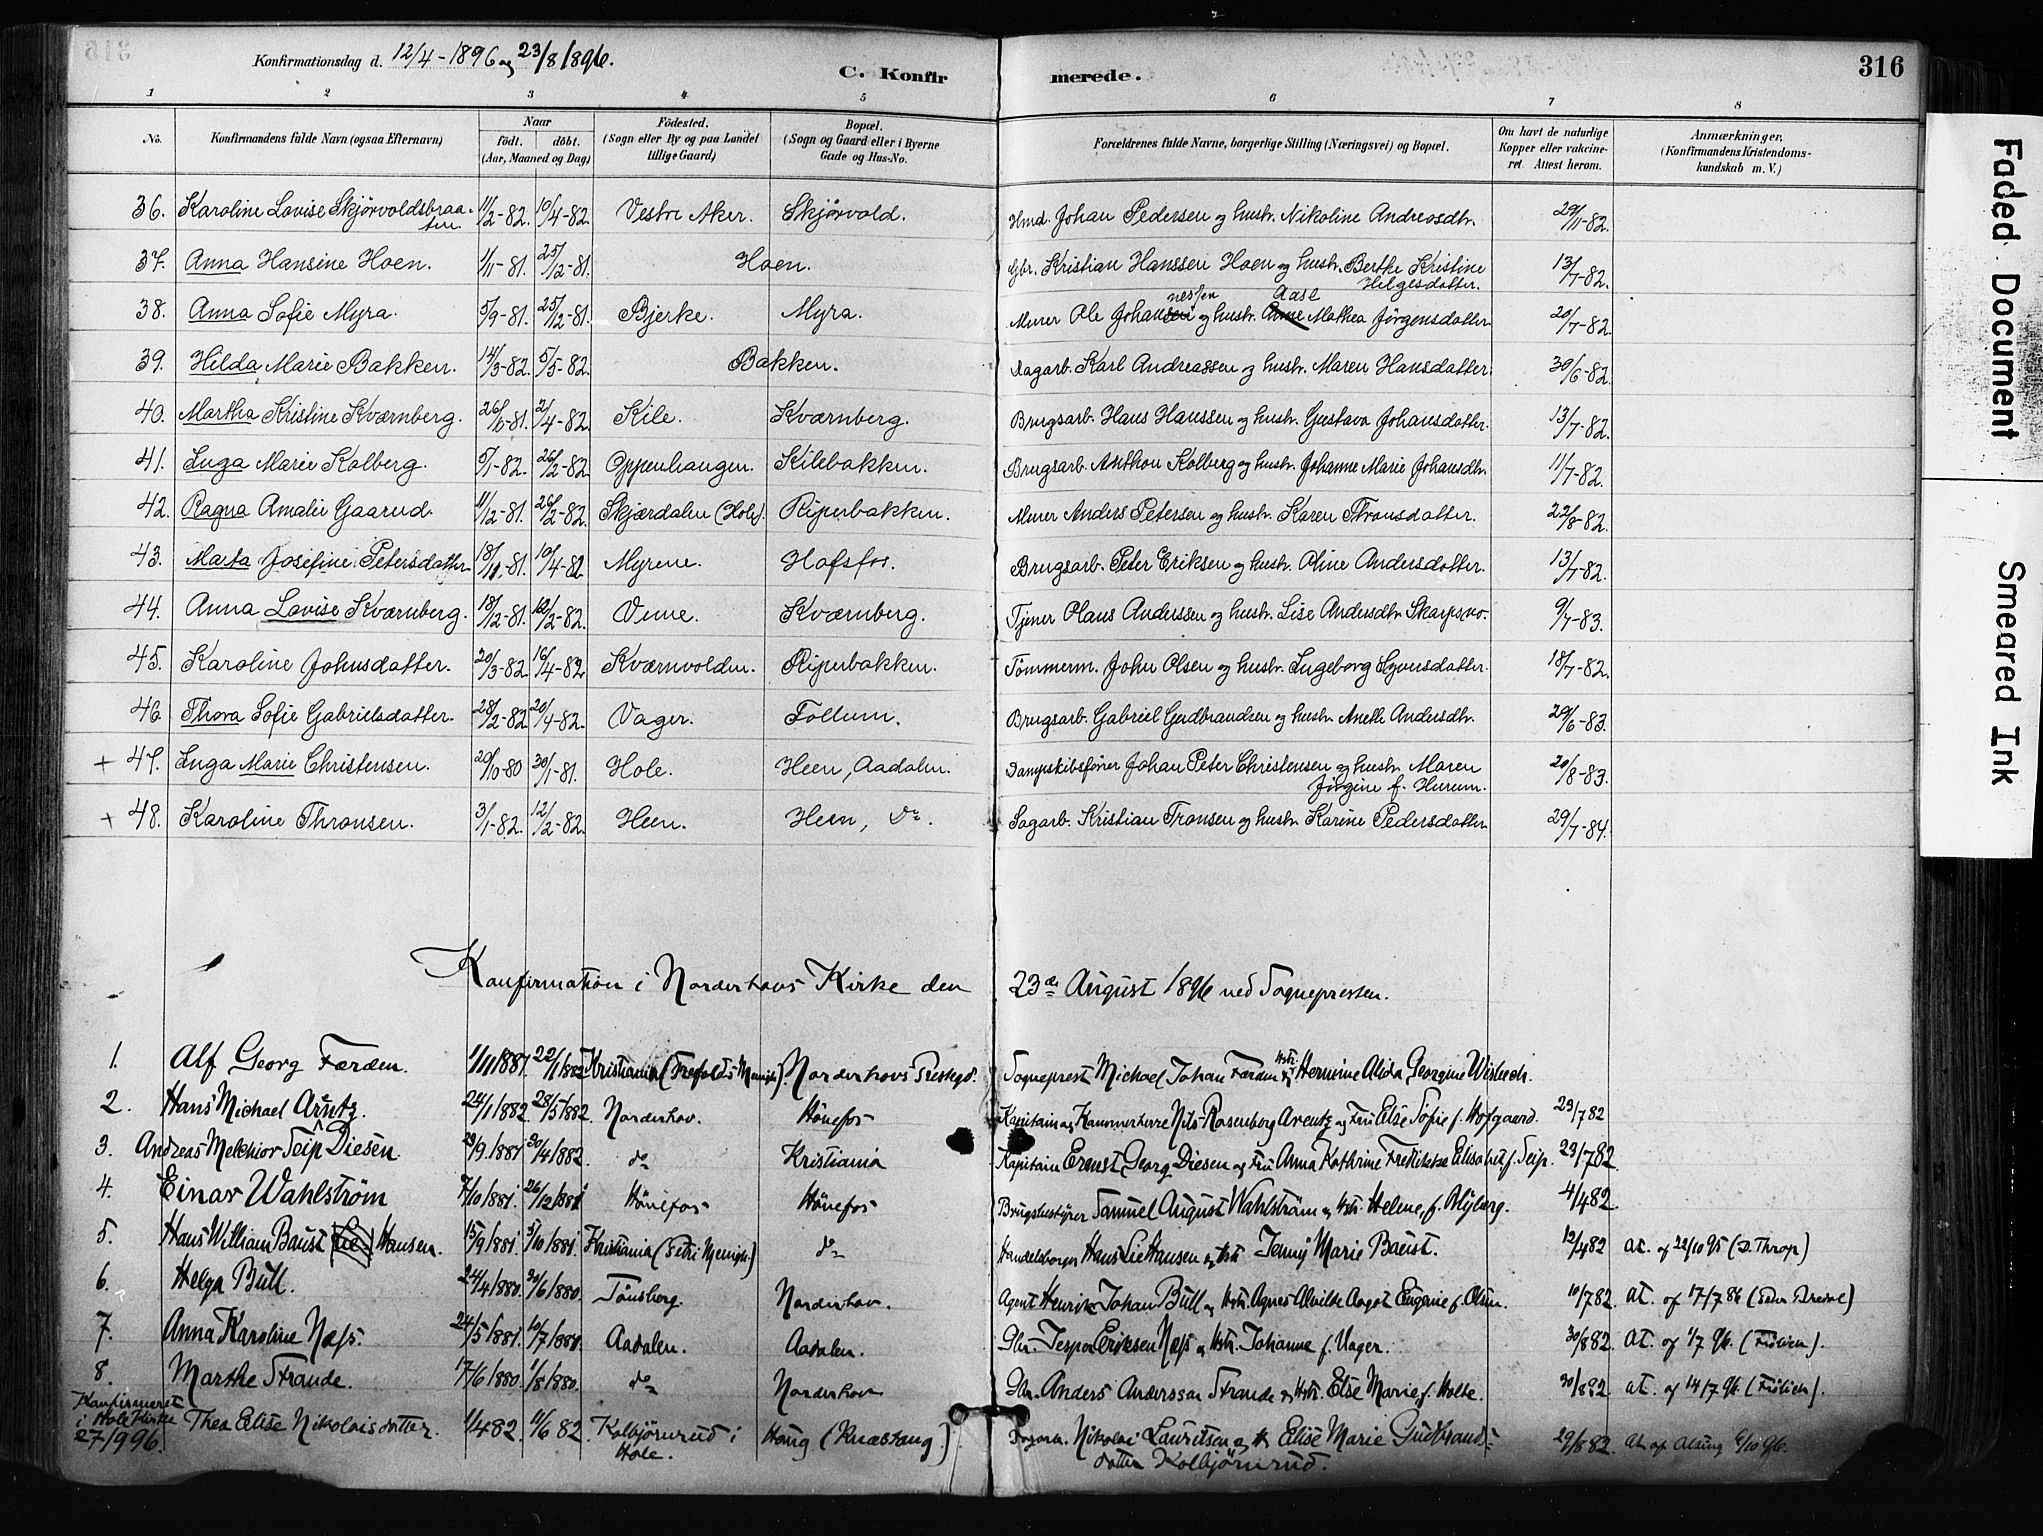 316
Konfirmationsdag d. 12/4-1896 og 23/8 1896.
C. Konfirmerede.
1 2 3 4 5 6 7 8
No. Konfirmandens fulde Navn (ogsaa Efternavn) Naar födt. döbt. (Aar, Maaned og Dag) Födested. (Sogn eller By og paa Landet tillige Gaard) Bopæl. (Sogn og Gaard eller i Byerne Gade og Hus-No. Forældrenes fulde Navne, borgerlige Stilling (Næringsvei) og Bopæl. Om havt de naturlige Kopper eller vakcineret. Attest herom. Anmærkninger, (Konfirmandens Kristendomskundskab m. V.)
36. Karoline Lovise Skjörvoldsbraaten. 11/2-82. 10/4-82. Vestre Aker. Skjörvold. Hmd. Johan Pedersen og hustr. Nikoline Andreasdtr. 29/11-82.
37. Anna Hansine Hoen. 1/11-81. 25/12-81. Hoen. Gbr. Kristian Hanssen Hoen og hustr. Berthe Kristine Helgesdatter. 13/7-82.
38. Anna Sofie Myra. 5/9-81. 25/12-81. Bjerke. Myra. Murer Ole Johannessen og hustr. Aase Mathea Jörgensdatter. 20/7-82.
39. Hilda Marie Bakken. 14/3-82. 5/5-82. Bakken. Dagarb. Karl Andreassen og hustr. Maren Hansdatter. 30/6-82.
40. Martha Kristine Kværnberg. 26/6-81. 2/4-82. Kile. Kværnberg. Brugsarb. Hans Hanssen og hustr. Gustava Johansdatter. 13/7-82.
41. Inga Marie Kolberg. 5/1-82. 26/2-82. Oppenhaugen. Kilebakken. Brugsarb. Anthon Kolberg og hustr. Johanne Marie Johansdtr. 11/7-82.
42. Ragna Amalie Gaarud. 11/12-81. 26/2-82. Skjærdalen (Hole). Riperbakken. Murer Anders Petersen og hustr. Karen Thronsdatter. 22/8-82.
43. Marta Josefine Petersdatter 18/11-81. 10/4-82 Myrene. Hofsfos. Brugsarb. Peter Eriksen og hustr. Oline Andersdatter. 13/7-82.
44. Anna Lovise Kværnberg. 18/12-81. 12/2-82. Veme. Kværnberg. Tjener Olaus Anderssen og hustr. Lise Andersdtr. Skarpsno. 9/7-83.
45. Karoline Johnsdatter. 20/3-82. 16/4-82 Kværnvolden. Riperbakken. Tömmerm. John Olsen og hustr. Ingeborg Syvensdatter. 18/7-82.
46. Thora Sofie Gabrielsdatter. 28/2-82 20/4-82. Vager. Follum. Brugsarb. Gabriel Gudbrandsen og hustr. Anette Andersdtr. 29/6-83.
+ 47. Inga Marie Christensen. 20/10-80 30/1-81. Hole. Heen, Aadalen. Dampskibsförer Johan Peter Christensen og hustr. Maren Jörgine f. Hurum. 20/8-83.
+ 48. Karoline Thronsen. 3/1-82. 12/2-82. Heen. Heen, do. Sagarb. Kristian Tronsen og hustr. Karine Pedersdatter. 29/7-84.
Konfirmation i Norderhovs Kirke den 23de August 1896 ved Sognepresten.
1. Alf Georg Færden. 1/11 1881. 22/1 1882 Kristiania (Trefoldis Menigh). Norderhovs Prestegd. Sogneprest Michael Johan Færden og Hstr. Hermine Alida Georgine Wisbech.
2. Hans Michael Arntz. 24/1 1882. 28/5 1882. Norderhov. Hönefos Kapitain og Kammerherre Nils Rosenberg Arentz og Fru Elise Sofie f. Hofgaard. 29/7 82
3. Andreas Melchior Seip Diesen. 29/9 1881 30/4 1882. do Kristiania Kapitain Ernst Georg Diesen og Fru Anna Kathrine Fredrikke Elisabet f. Seip. 29/7 82.
4. Einar Wahlström 7/10 1881. 26/12 1881 Hönefos Hönefos Brugsbestyrer Samuel August Wahlström og Hstr. Helene f. Myberg. 4/4 82.
5. Hans William Baust Hansen. 15/9 1881. 5/10 1881. Kristiania (Petri Menigh.) do Handelsborger Hans Lie Hansen og Hstr. Jenny Marie Baust. 12/4 82 At. af 22/10 95 (D. Throp)
6. Helga Bull. 24/4 1880. 30/6 1880. Tönsberg. Norderhov. Agent Henrik Johan Bull og Hstr. Agnes Alvilde Aagot Eugenie f. Olsen. 10/7 82. At. af 17/7 86
7. Anna Karoline Næss. 24/5 1881. 10/7 1881. Aadalen. Aadalen. Gbr. Jesper Eriksen Næss og Hstr. Johanne f. Vager. 30/8 82 At. af 1/7 96.
8. Marthe Strande. 17/6 1880. 1/8 1880. do Norderhov Gbr. Anders Anderssen Strande og Hstr. Elise Marie f. Holte. 30/8 82 At. af 14/7 96.
Konfirmeret i Hole Kirke 27/9 96. Thea Elise Nikolaisdatter. 1/4 82. 11/6 82. Kolbjörnrud i Hole. Haug (Knæstang.) Nikolai Lauritsen og H. Elise Marie Gudbrandsdatter Kolbjörnrud. 29/8 82. At. af Alsing 6/10 96.
Faded Document
Smeared Ink